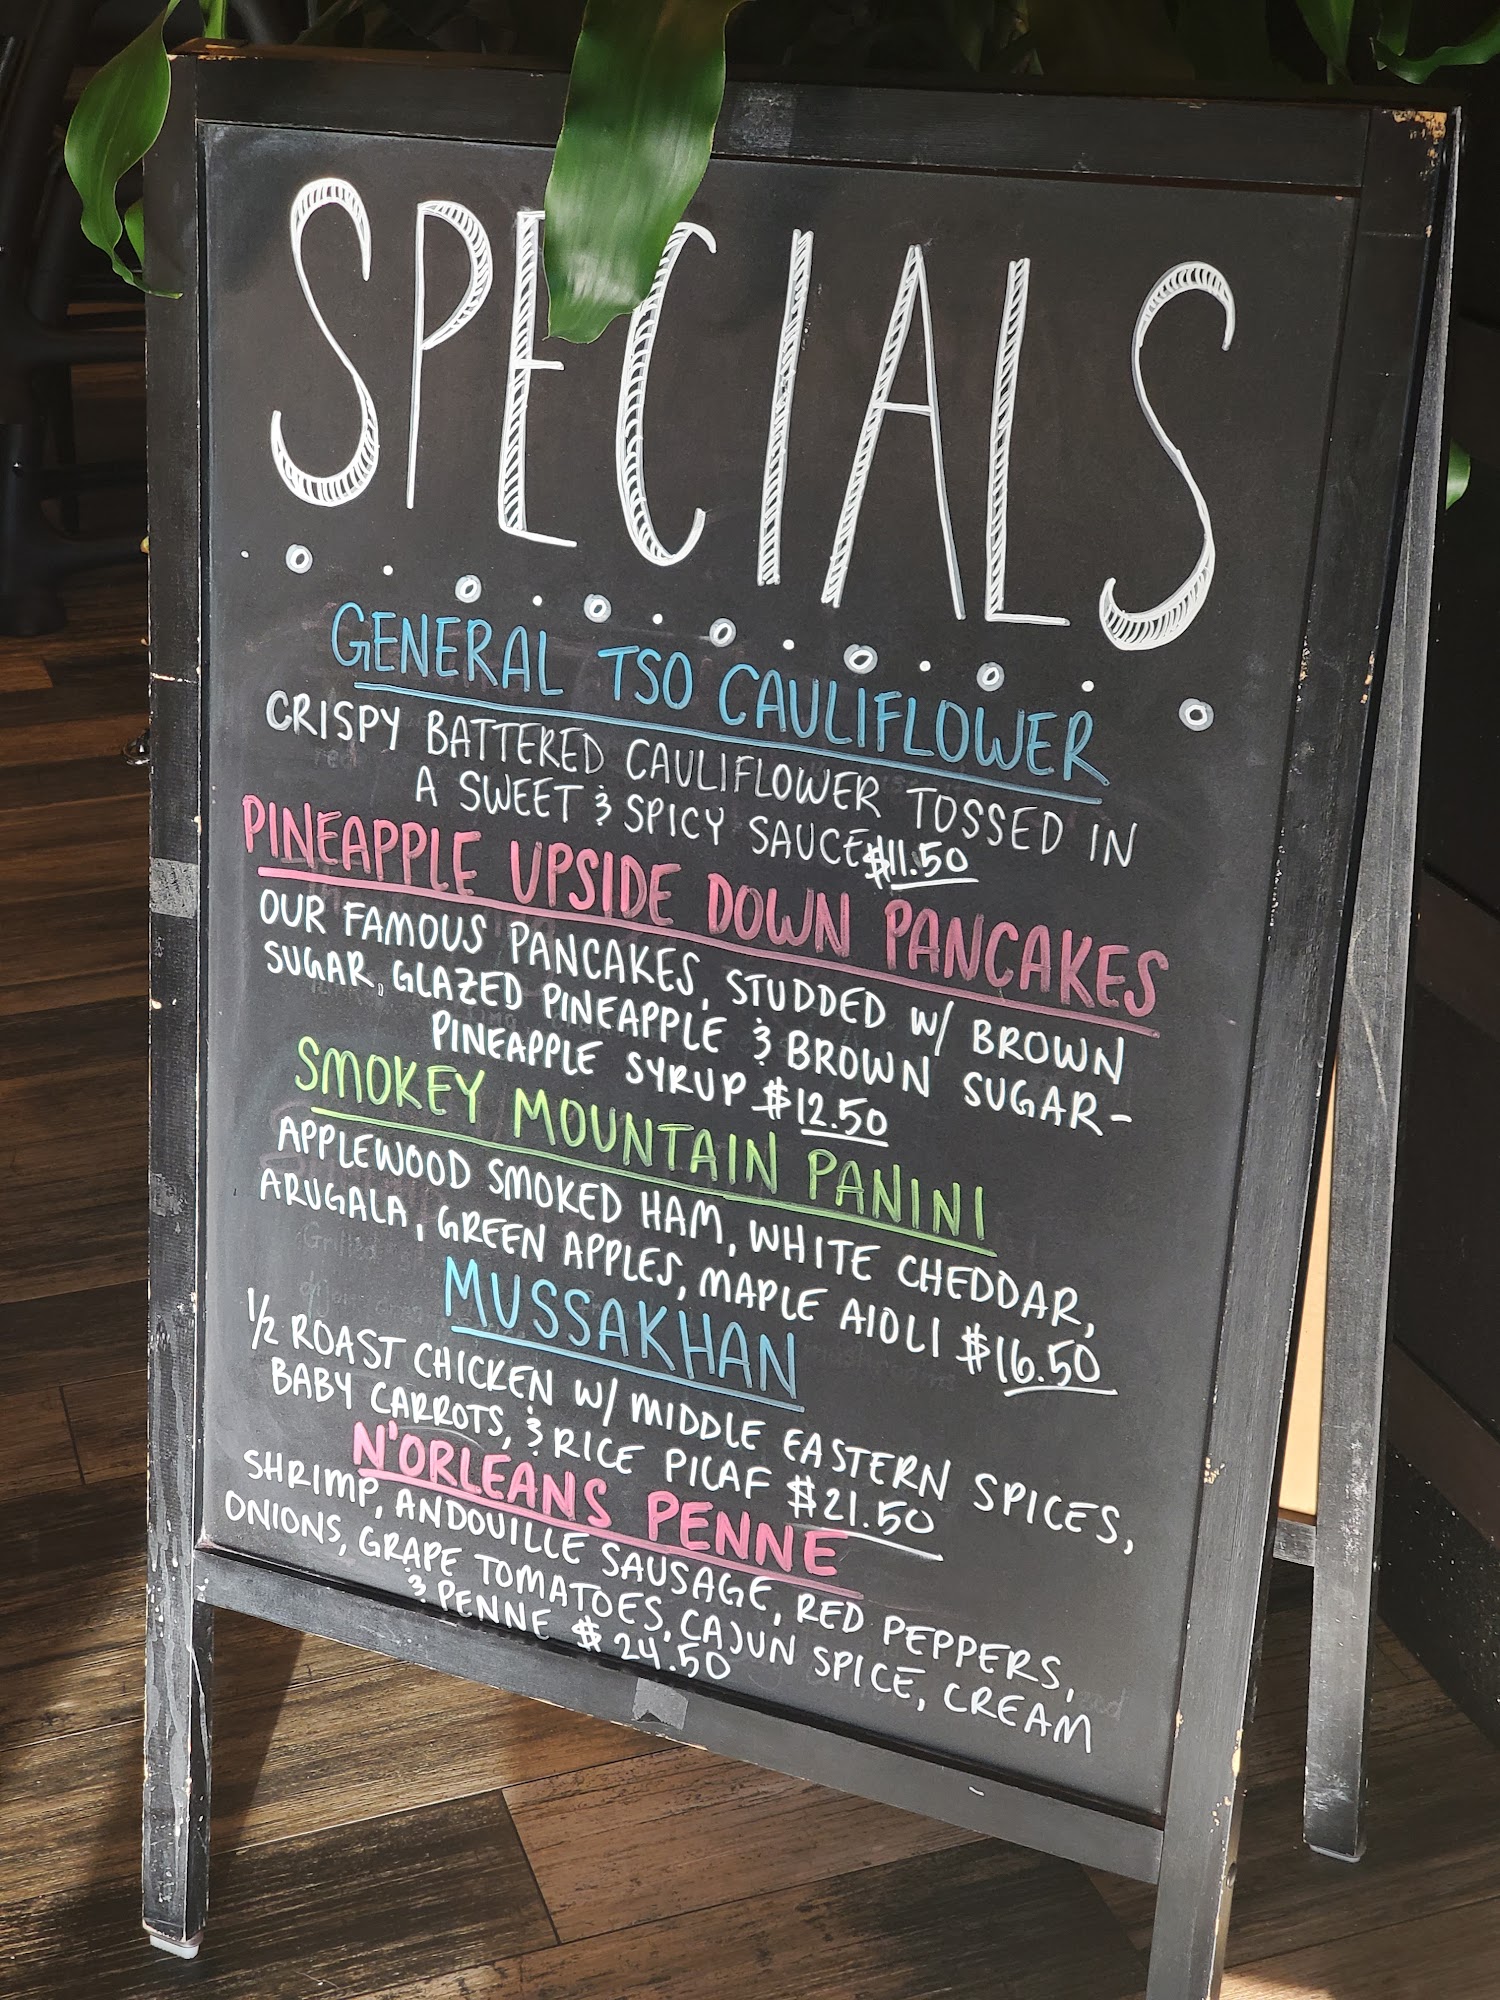 SPECIALS
GENERAL TSO CAULIFLOWER
CRISPY BATTERED CAULIFLOWER TOSSED IN
A SWEET & SPICY SAUCE $11.50
PINEAPPLE UPSIDE DOWN PANCAKES
OUR FAMOUS PANCAKES, STUDDED W/ BROWN
SUGAR, GLAZED PINEAPPLE & BROWN SUGAR-
PINEAPPLE SYRUP $12.50
SMOKEY MOUNTAIN PANINI
APPLEWOOD SMOKED HAM, WHITE CHEDDAR,
ARUGALA, GREEN APPLES, MAPLE AIOLI $16.50
MUSSAKHAN
1/2 ROAST CHICKEN W/ MIDDLE EASTERN SPICES,
BABY CARROTS, & RICE PILAF $21.50
N'ORLEANS PENNE
SHRIMP, ANDOUILLE SAUSAGE, RED PEPPERS,
ONIONS, GRAPE TOMATOES, CAJUN SPICE, CREAM
& PENNE $24.50